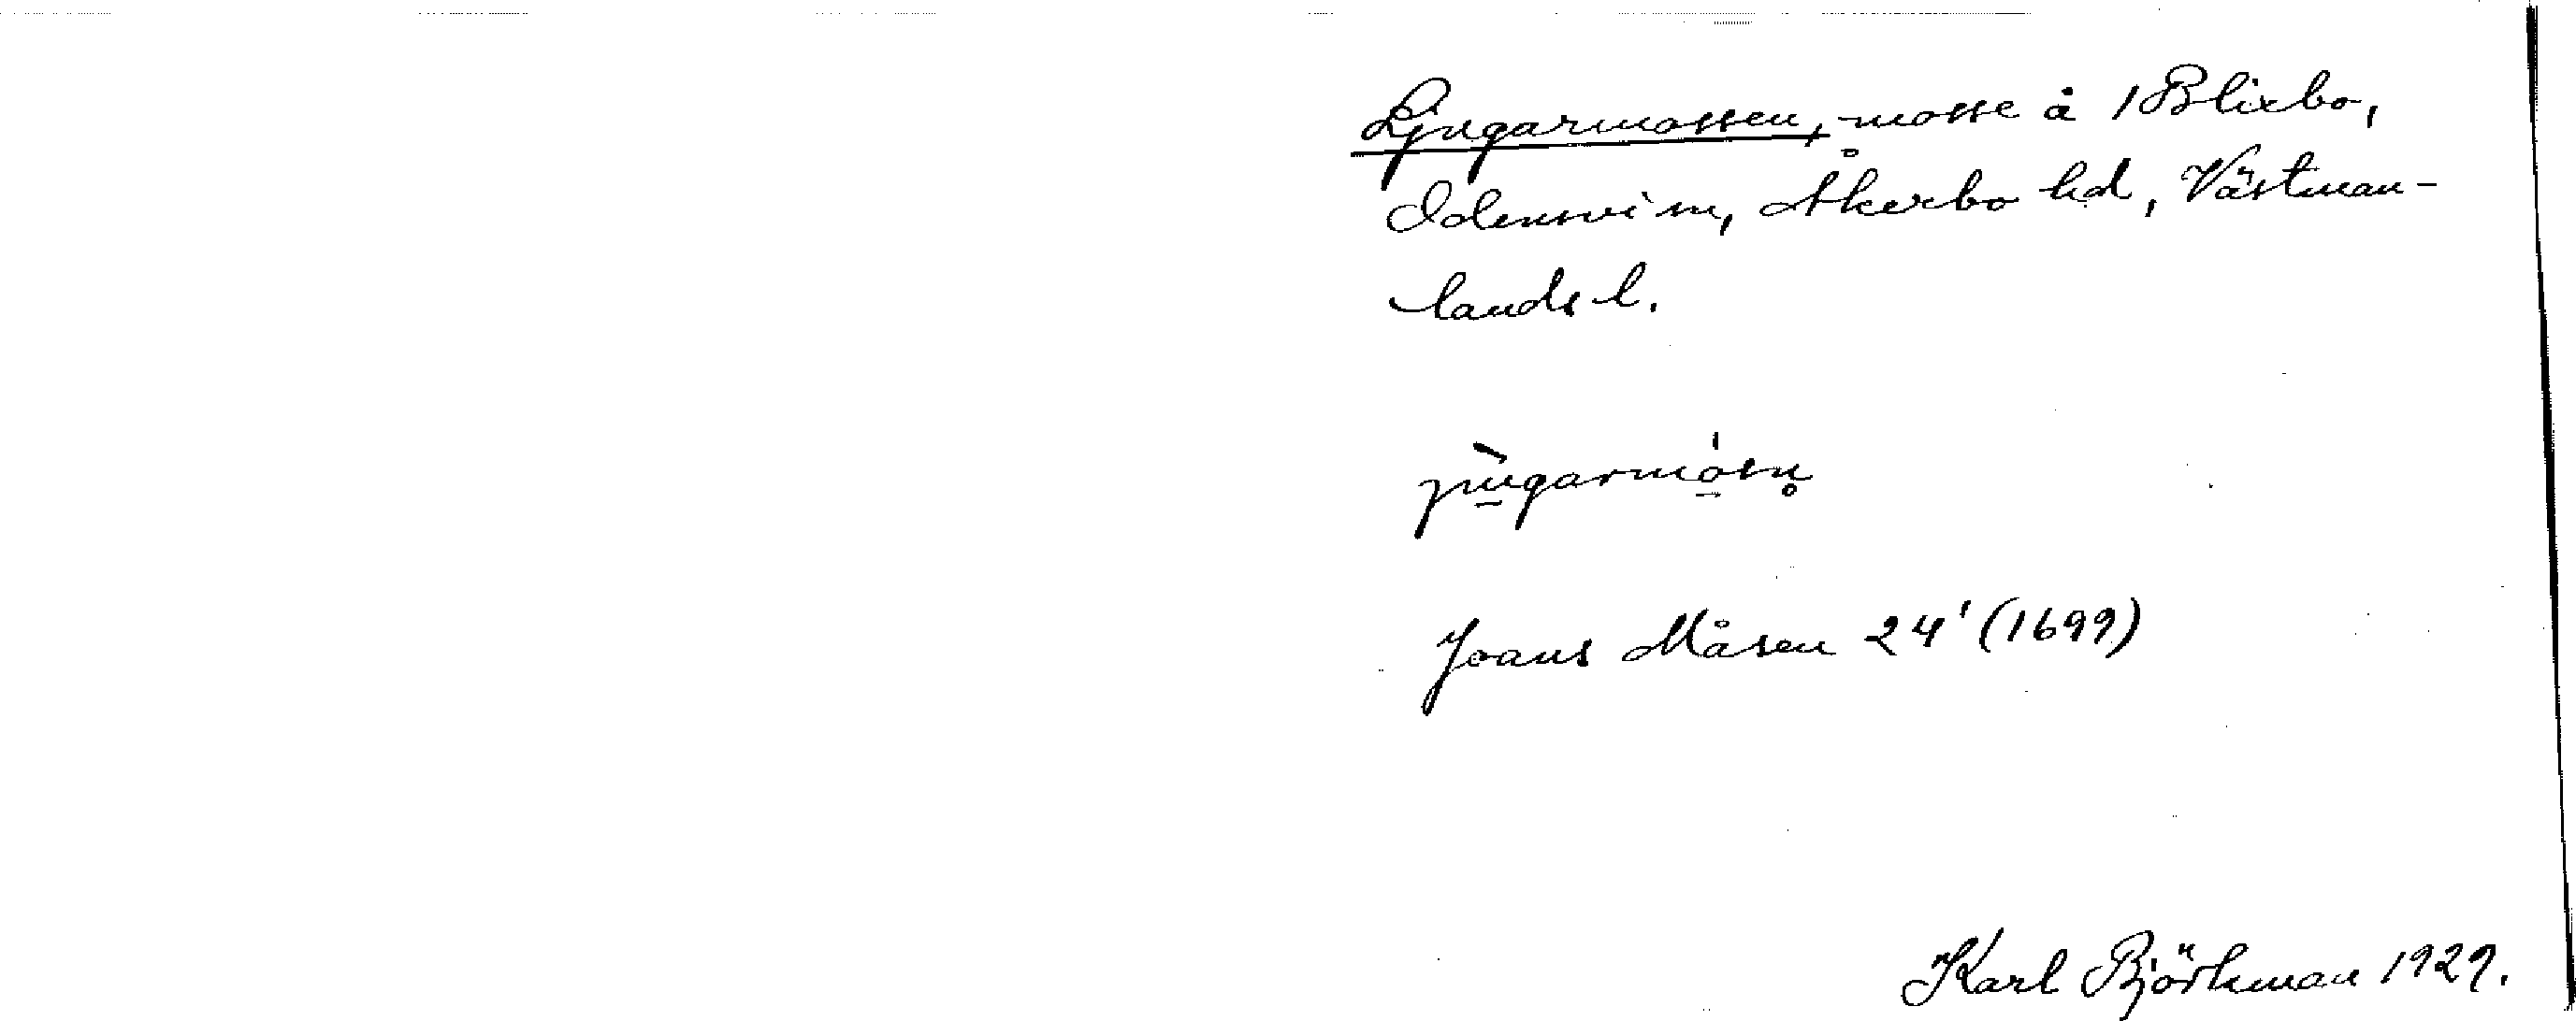 Ljugarmossen, mosse å 1 Blixbo,
Odensvi sn, Åkerbo hd, Västman-
lands l.
jùgarmósn̥
Joans Måsen 24' (1699)
Karl Björkman 1929.